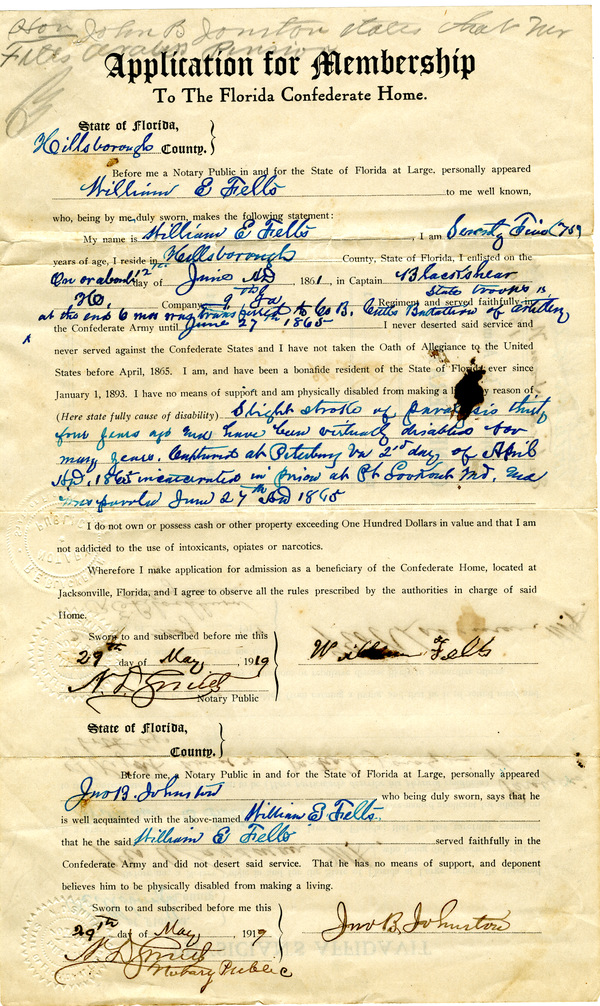 Hon John B Jonston states that Mr
Fells draws Pension
Application for Membership
To The Florida Confederate Home.
State of Florida,
Hillsborough County.
Before me a Notary Public in and for the State of Florida at Large, personally appeared
William E Fells to me well known,
who, being by me duly sworn, makes the following statement:
My name is William E Fells, I am Seventy Five (75)
years of age, I reside in Hillsborough County, Florida, I enlisted on the
On or about 12th day of June AD 1861, in Captain Blackshear
State troops in
Co. Company 9th Ga Regiment and served faithfully in
at the end 6 mos was transferred to Co B. Cutts Battalion of artillery
the Confederate Army until June 27th 1865 I never deserted said service and
never served against the Confederate States and I have not taken the Oath of Allegiance to the United
States before April, 1865. I am, and have been a bonafide resident of the State of Florida ever since
January 1, 1893. I have no means of support and am physically disabled from making a by reason of
(Here state fully cause of disability) Slight stroke of paralysis thirty
four years ago and have been virtually disabled for
many years. Captured at Petersburg Va 2nd day of April
A.D. 1865 incarcerated in prison at Pt Lookout Md. and
was paroled June 27th AD 1865
I do not own or possess cash or other property exceeding One Hundred Dollars in value and that I am
not addicted to the use of intoxicants, opiates or narcotics.
Wherefore I make application for admission as a beneficiary of the Confederate Home, located at
Jacksonville, Florida, and I agree to observe all the rules prescribed by the authorities in charge of said
Home.
Sworn to and subscribed before me this
29th day of May, 1919
William Fells
Notary Public
State of Florida,
County.
Before me, a Notary Public in and for the State of Florida at Large, personally appeared
Jno B. Johnston who being duly sworn, says that he
is well acquainted with the above-named William E Fells
that he the said William E Fells served faithfully in the
Confederate Army and did not desert said service. That he has no means of support, and deponent
believes him to be physically disabled from making a living.
Sworn to and subscribed before me this
29th day of May, 1919
Jno B. Johnston
Notary Public